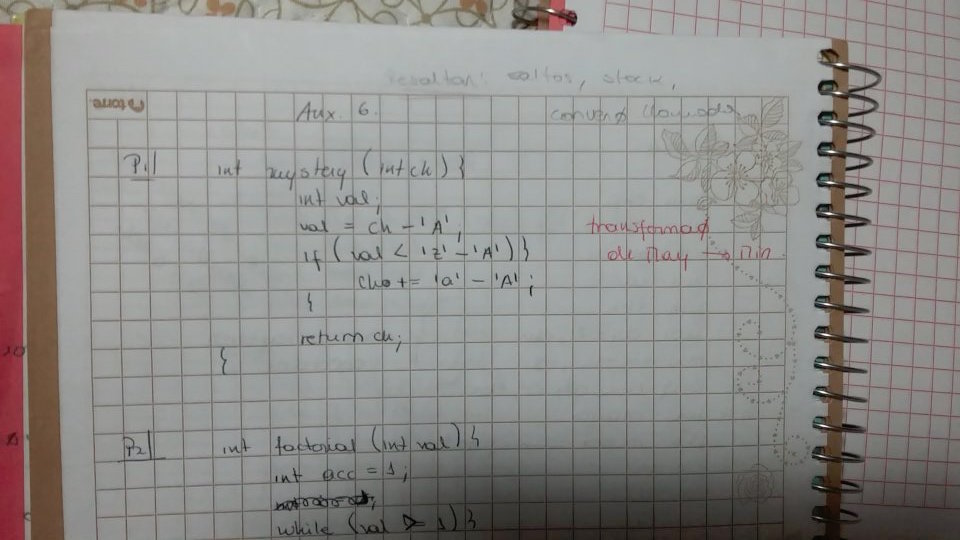 resaltar: saltos, stack,
convenø llamados
torre
Aux. 6.
P1| int mystery (int ch) {
int val;
val = ch - 'A';
if (val < 'z' - 'A') }
ch += 'a' - 'A';
{
return ch;
{
transformaø
de May → Min
P2| int factorial (int val) {
int acc = 1;
while (val > 1) }